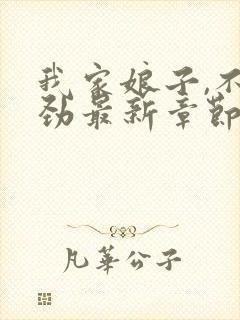 我家娘子,不
劲最新章節
凡華公子